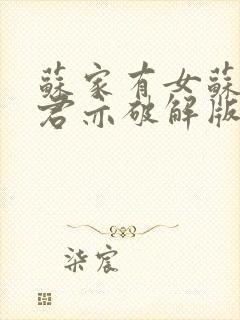 蘇家有女蘇
君亦破解版
柒宸